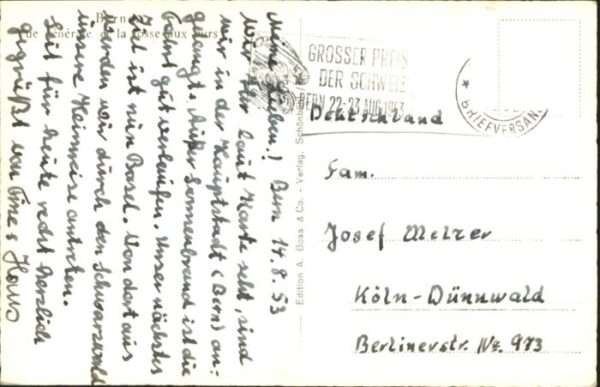 Bern
Vue générale de la fosse aux ours
Meine Lieben! Bern 14.8.53
Wie Ihr laut Karte seht, sind
wir in der Hauptstadt (Bern) an-
gelangt. Außer Sonnenbrand ist die
Fahrt gut verlaufen. Unser nächstes
Ziel ist nun Basel. Von dort aus
werden wir durch den Schwarzwald
unsere Heimreise antreten.
Seit für heute recht herzlich
gegrüßt von Eure Hans
Edition A. Boss & Co. - Verlag, Schönbühl
GROSSER PREIS
DER SCHWEIZ
BERN 22-23 AUG. 1953
BRIEFVERSAND
Deutschland
Fam.
Josef Melzer
KÖLN-DÜNNWALD
Berlinerstr. Nr. 973